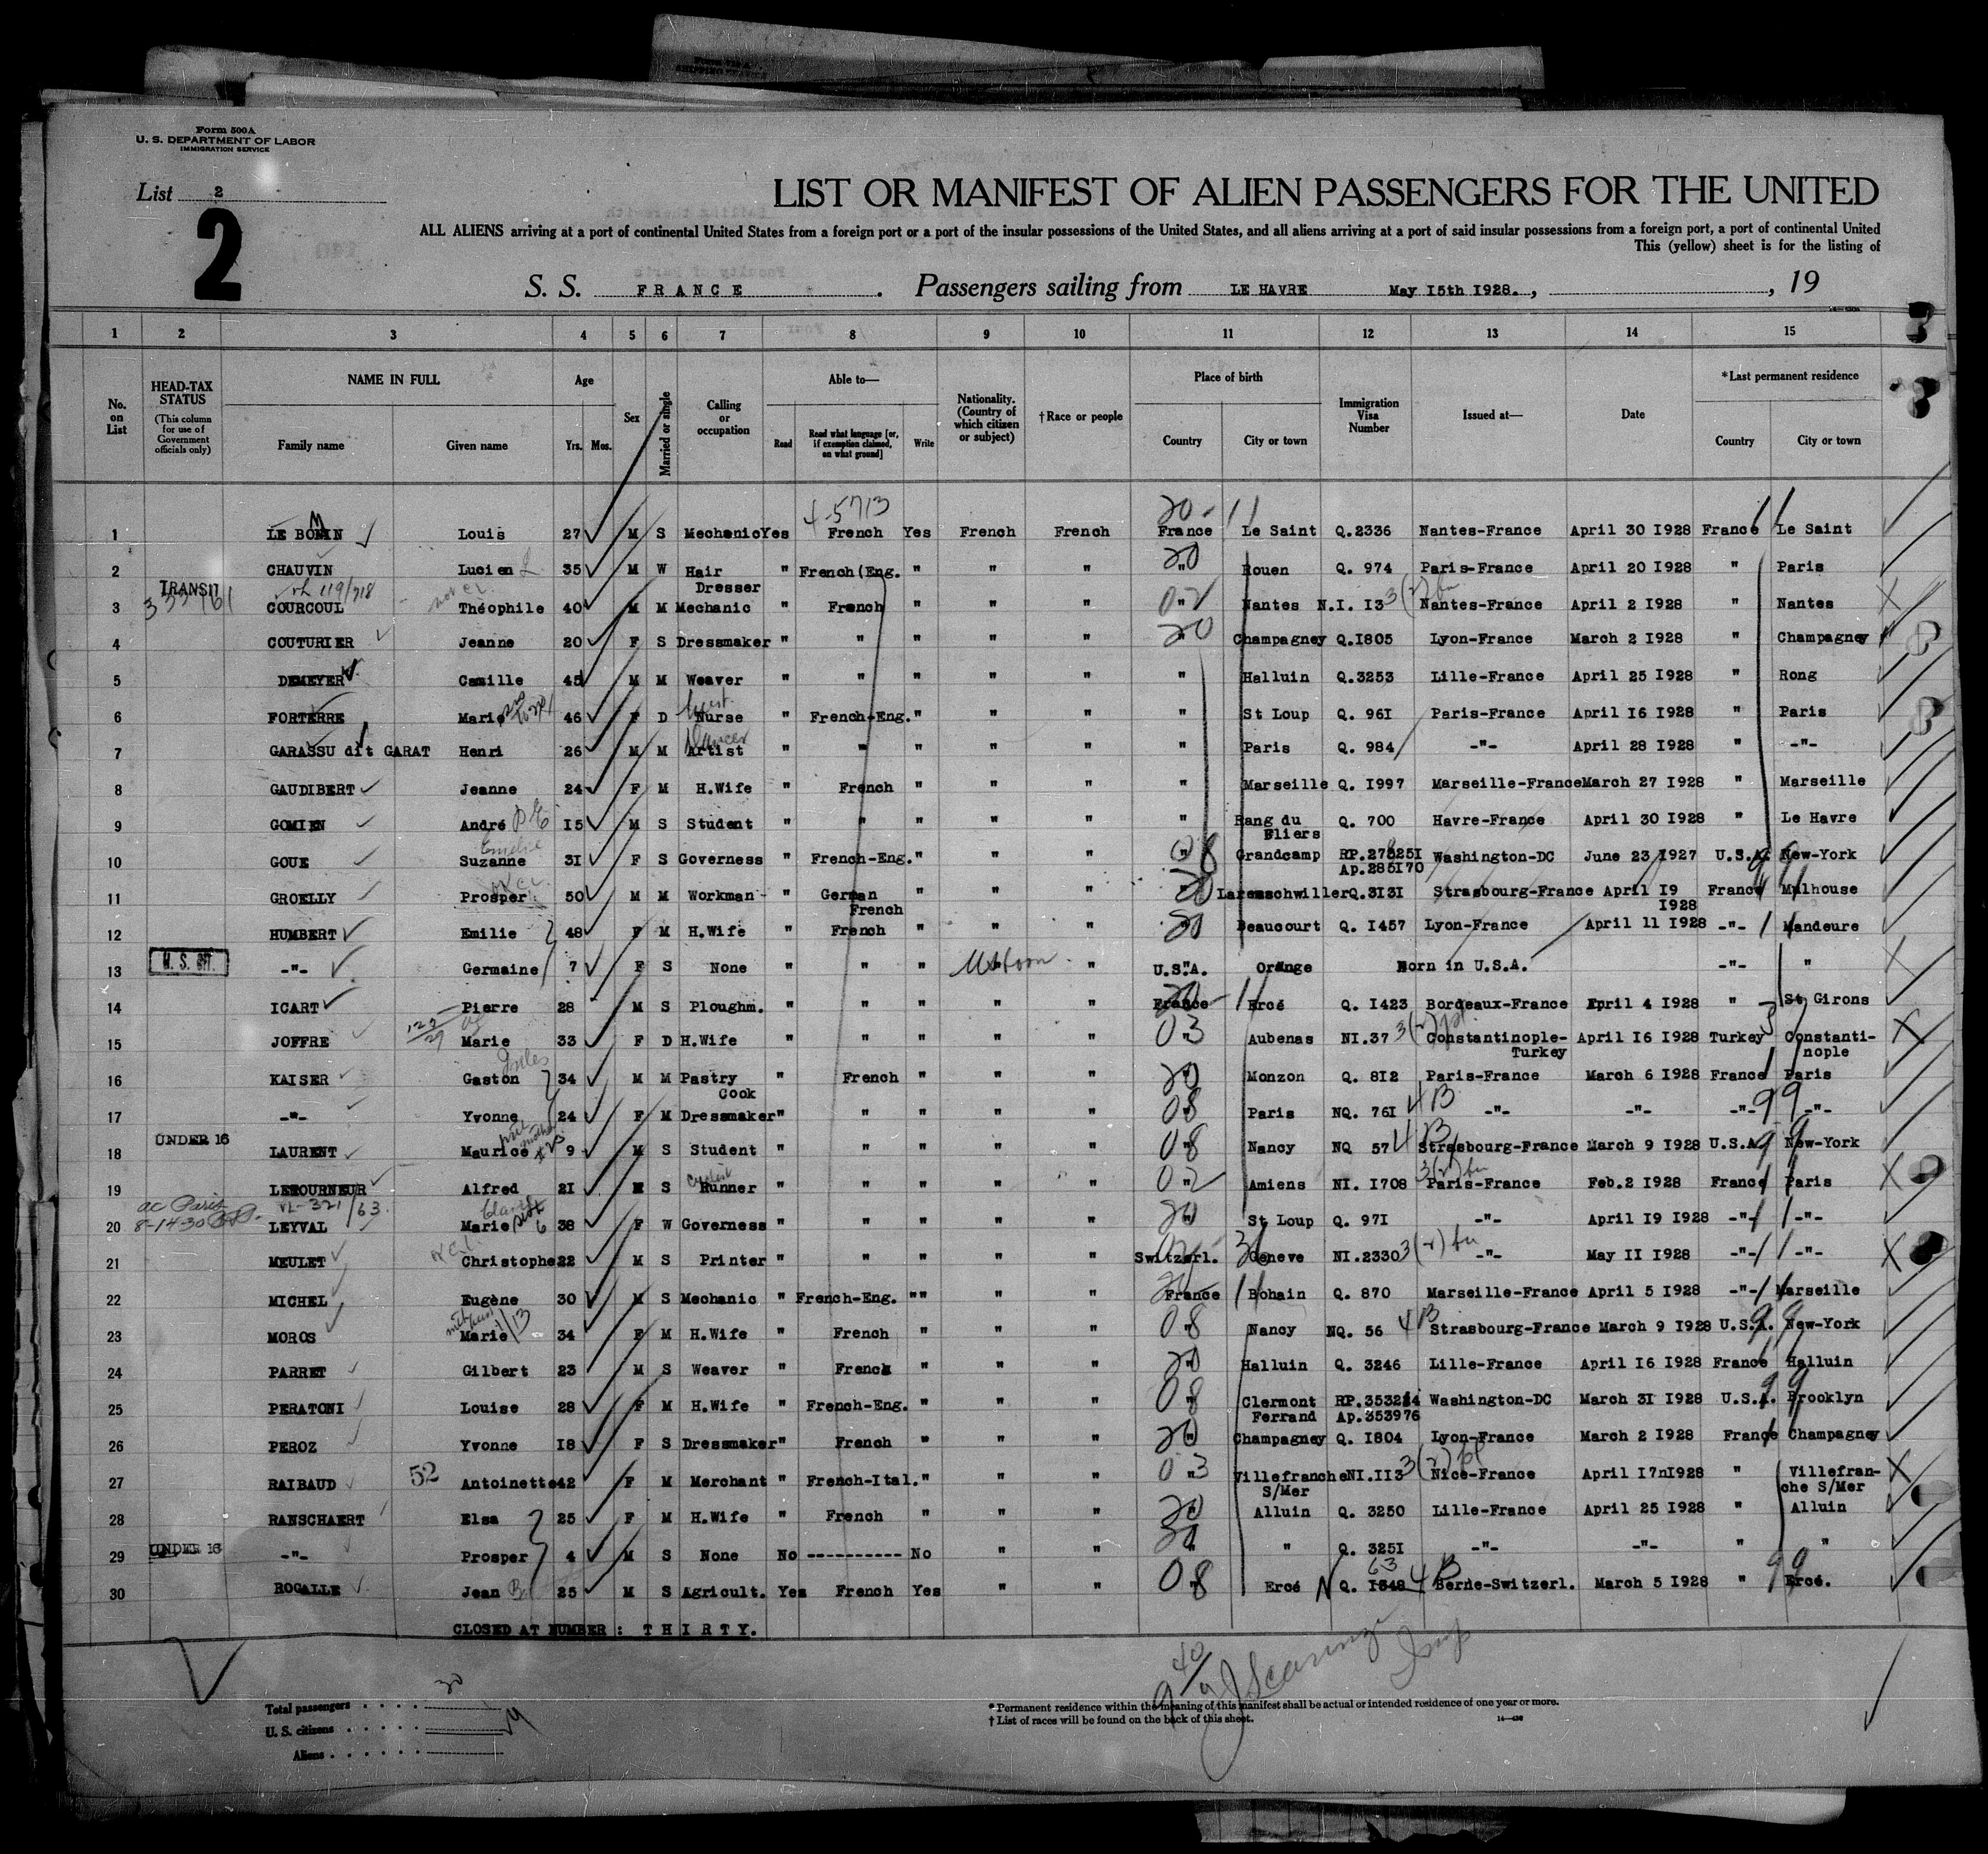 Form 500A
U. S. DEPARTMENT OF LABOR
IMMIGRATION SERVICE
List 2
2
LIST OR MANIFEST OF ALIEN PASSENGERS FOR THE UNITED
ALL ALIENS arriving at a port of continental United States from a foreign port or a port of the insular possessions of the United States, and all aliens arriving at a port of said insular possessions from a foreign port, a port of continental United
This (yellow) sheet is for the listing of
S. S. FRANCE. Passengers sailing from LE HAVRE May I5th I928. , , 19
1 2 3 4 5 6 7 8 9 10 11 12 13 14 15
No. on List
HEAD-TAX STATUS (This column for use of Government officials only)
NAME IN FULL Family name Given name
Age Yrs. Mos.
Sex
Married or single
Calling or occupation
Able to— Read Read what language [or, if exemption claimed, on what ground] Write
Nationality. (Country of which citizen or subject)
†Race or people
Place of birth Country City or town
Immigration Visa Number
Issued at—
Date
*Last permanent residence Country City or town
4-5713 20-
1 LE BOMIN Louis 27 M S Mechanic Yes French Yes French French France Le Saint Q.2336 Nantes-France April 30 I928 France Le Saint
2 CHAUVIN Lucien 35 M W Hair Dresser " French(Eng. " " " 20 " Rouen Q. 974 Paris-France April 20 I928 " Paris
TRANSIT 119/718
3 COURCOUL Théophile 40 M M Mechanic " French " " " 02 " Nantes N.I. I3 3(2) Nantes-France April 2 I928 " Nantes
4 COUTURIER Jeanne 20 F S Dressmaker " " " " " 20 " Champagney Q.I805 Lyon-France March 2 I928 " Champagney
5 DEMEYER Camille 45 M M Weaver " " " " " " Halluin Q.3253 Lille-France April 25 I928 " Rong
6 FORTERRE Marie 46 F D Nurse " French-Eng. " " " " St Loup Q. 96I Paris-France April I6 I928 " Paris
7 GARASSU dit GARAT Henri 26 M M Dancer Artist " " " " " " Paris Q. 984 -"- April 28 I928 " -"-
8 GAUDIBERT Jeanne 24 F M H.Wife " French " " " " Marseille Q. I997 Marseille-France March 27 I928 " Marseille
9 GOMIEN André I5 M S Student " " " " " " Rang du Fliers Q. 700 Havre-France April 30 I928 " Le Havre
10 GOUE Emelie Suzanne 3I F S Governess " French-Eng. " " " 08 " Grandcamp RP.27525I Ap.285I70 Washington-DC June 23 I927 U.S.A. New-York
11 GROELLY Prosper 50 M M Workman " German French " " " 20 " Laremschwiller Q.3I3I Strasbourg-France April I9 I928 France Mulhouse
12 HUMBERT Emilie 48 F M H.Wife " French " " " 20 " Beaucourt Q. I457 Lyon-France April 11 I928 -"- Mandeure
U. S. CIT.
13 -"- Germaine 7 F S None " " " US born " U.S.A. Orange Born in U.S.A. -"- "
14 ICART Pierre 28 M S Ploughm. " " " " " France Ercé Q. I423 Bordeaux-France April 4 I928 " St Girons
15 JOFFRE Marie 33 F D H.Wife " " " " " 03 Aubenas NI.37 3(2) Constantinople-Turkey April I6 I928 Turkey Constanti-nople
16 KAISER Jules Gaston 34 M M Pastry Cook " French " " " 20 " Monzon Q. 8I2 Paris-France March 6 I928 France Paris
17 -"- Yvonne 24 F M Dressmaker " " " " " 08 " Paris NQ. 76I 4B -"- -"- -"- 99 -"-
UNDER 16
18 LAURENT Maurice 9 M S Student " " " " " 08 Nancy NQ 57 4B Strasbourg-France March 9 I928 U.S.A. New-York
19 LETOURNEUR Alfred 2I M S Cyclist Runner " " " " " 02 Amiens NI. I708 3(2) Paris-France Feb.2 I928 France Paris
8-14-30 VL-321/63
20 LEYVAL Marie 38 F W Governess " " " " " 20 " St Loup Q. 97I -"- April I9 I928 -"- -"-
21 MEULET Christophe 22 M S Printer " " " " " Switzerl. Geneve NI.2330 3(2) -"- May II I928 -"- -"-
22 MICHEL Eugène 30 M S Mechanic " French-Eng. "" " " France Bohain Q. 870 Marseille-France April 5 I928 -"- Marseille
23 MOROS Marie 34 F M H.Wife " French " " " 08 " Nancy NQ. 56 4B Strasbourg-France March 9 I928 U.S.A. New-York
24 PARRET Gilbert 23 M S Weaver " French " " " 20 " Halluin Q. 3246 Lille-France April I6 I928 France Halluin
25 PERATONI Louise 28 F M H.Wife " French-Eng. " " " 08 " Clermont Ferrand RP.353214 Ap.353976 Washington-DC March 3I I928 U.S.A. Brooklyn
26 PEROZ Yvonne I8 F S Dressmaker " French " " " 20 " Champagney Q. I804 Lyon-France March 2 I928 France Champagney
27 RAIBAUD 52 Antoinette 42 F M Merchant " French-Ital. " " " 03 " Villefranche S/Mer NI.II3 3(2) Nice-France April I7nI928 " Villefran-che S/Mer
28 RANSCHAERT Elsa 25 F M H.Wife " French " " " 20 " Alluin Q. 3250 Lille-France April 25 I928 " Alluin
UNDER 16
29 -"- Prosper 4 M S None No ---------- No " " 20 " Q. 325I -"- -"- " "
30 ROGALLE Jean 25 M S Agricult. Yes French Yes " " 08 " Ercé N Q. I548 63 4B Berne-Switzerl. March 5 I928 " 99 Ercé.
CLOSED AT NUMBER : T H I R T Y.
Total passengers . . . . 30
U. S. citizens . . . . .
Aliens . . . . . .
* Permanent residence within the meaning of this manifest shall be actual or intended residence of one year or more.
† List of races will be found on the back of this sheet.